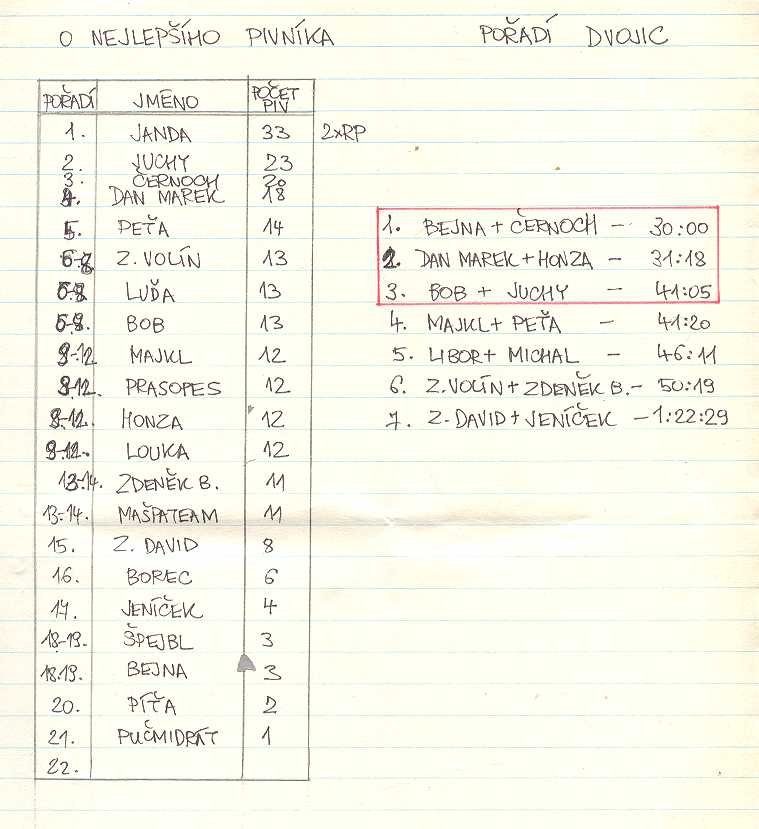 O NEJLEPŠÍHO PIVNÍKA
POŘADÍ JMÉNO POČET PIV
1. JANDA 33 2xRP
2. JUCHY 23
3. ČERNOCH 20
4. DAN MAREK 18
5. PEŤA 14
6-8 Z. VOLÍN 13
6-8 LUĎA 13
6-8. BOB 13
9-12 MAJKL 12
9-12. PRASOPES 12
9-12. HONZA 12
9-12. LOUKA 12
13-14. ZDENĚK B. 11
13-14. MAŠPATEAM 11
15. Z. DAVID 8
16. BOREC 6
17. JENÍČEK 4
18-19. ŠPEJBL 3
18.19. BEJNA 3
20. PÍŤA 2
21. PUČMIDRÁT 1
22.
POŘADÍ DVOJIC
1. BEJNA + ČERNOCH - 30:00
2. DAN MAREK + HONZA - 31:18
3. BOB + JUCHY - 41:05
4. MAJKL + PEŤA - 41:20
5. LIBOR + MICHAL - 46:11
6. Z. VOLÍN + ZDENĚK B. - 50:19
7. Z. DAVID + JENÍČEK - 1:22:29